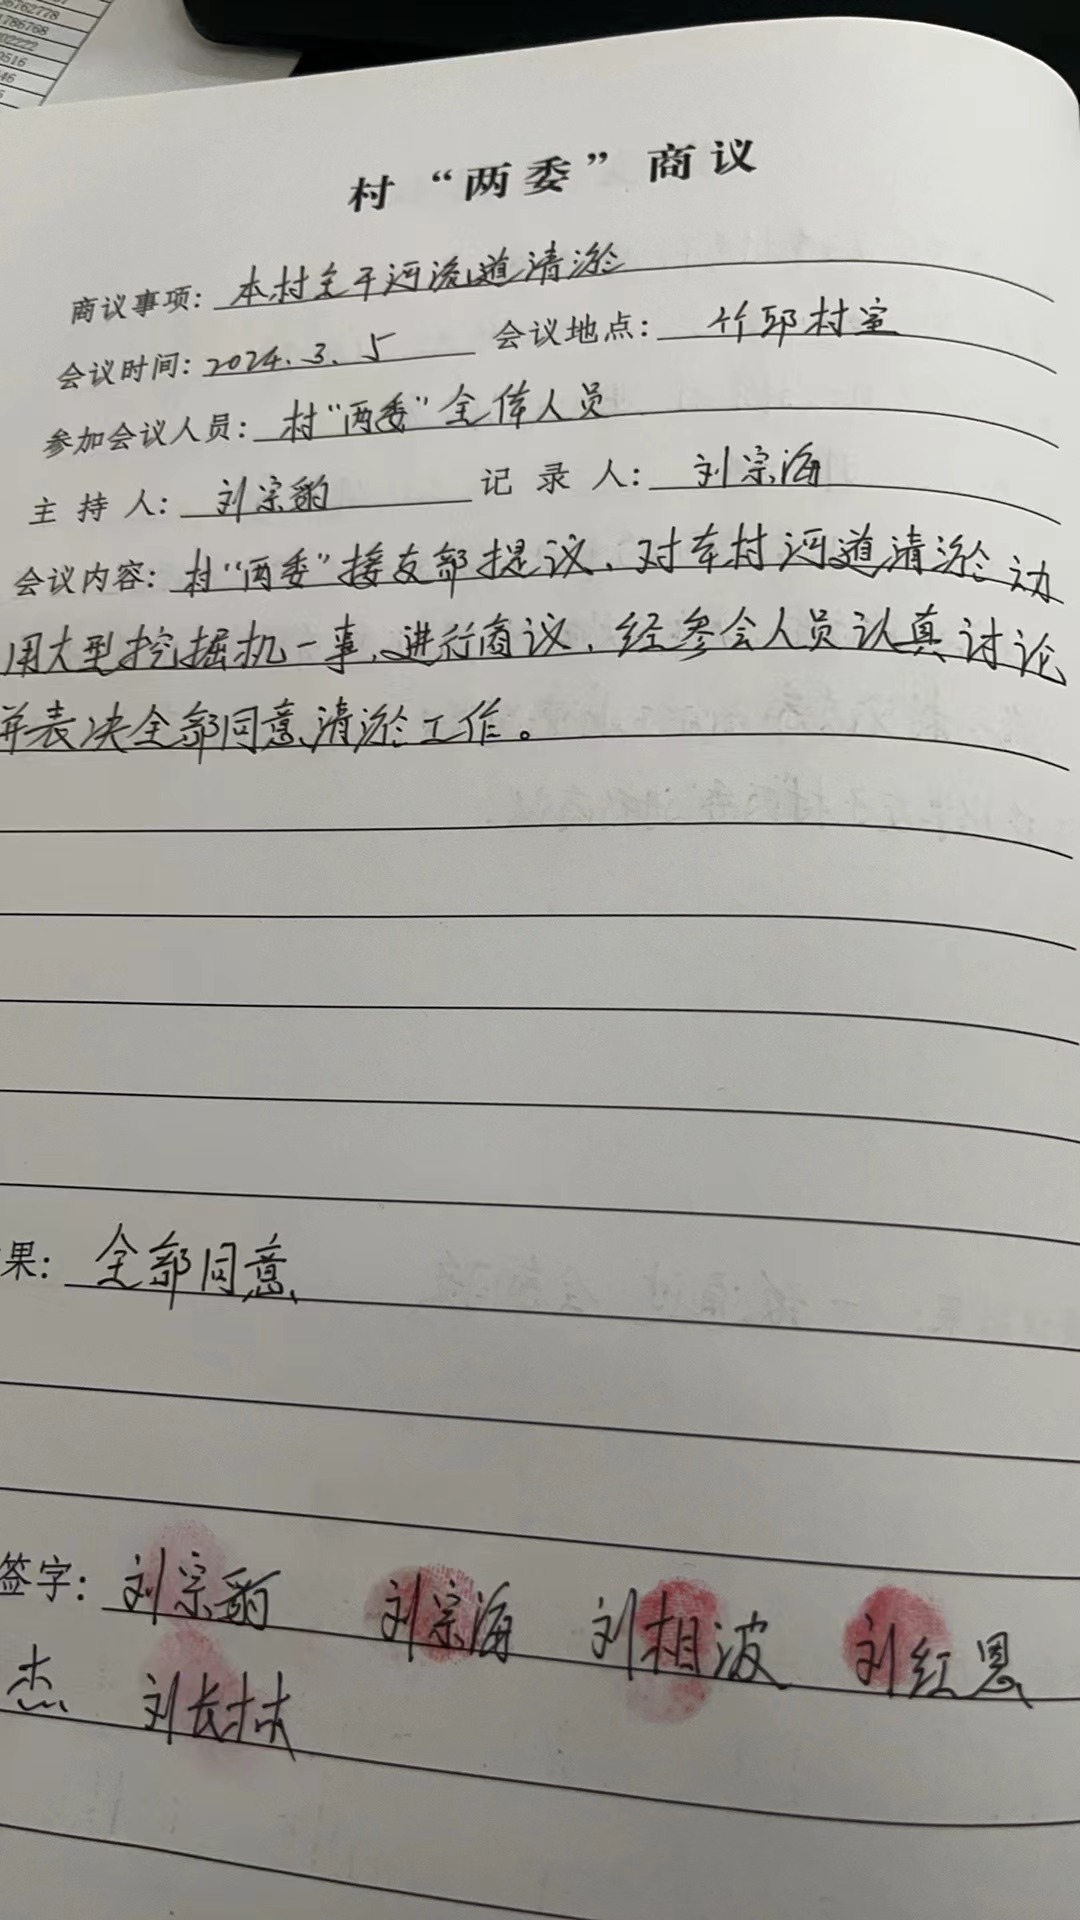 36762778
1786768
02222
0516
46
村“两委”商议
商议事项：本村主干河流道清淤
会议时间：2024.3.5 会议地点：竹邱村室
参加会议人员：村“两委”全体人员
主持人：刘宗豹 记录人：刘宗海
会议内容：村“两委”接支部提议、对本村河道清淤动
用大型挖掘机一事、进行商议、经参会人员认真讨论
并表决全部同意清淤工作。
果：全部同意
签字：刘宗豹 刘宗海 刘相波 刘红恩
杰 刘长林